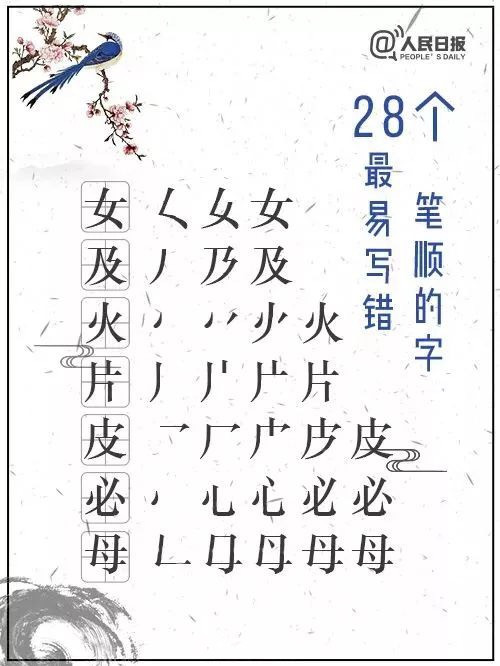 @人民日报
PEOPLE'S DAILY
28个
最易写错
笔顺的字
女 く 女 女
及 丿 乃 及
火 丶 火
片 丿 片
皮 乛 厂 皮
必 丶 心 心 必 必
母 𠃊 母 母